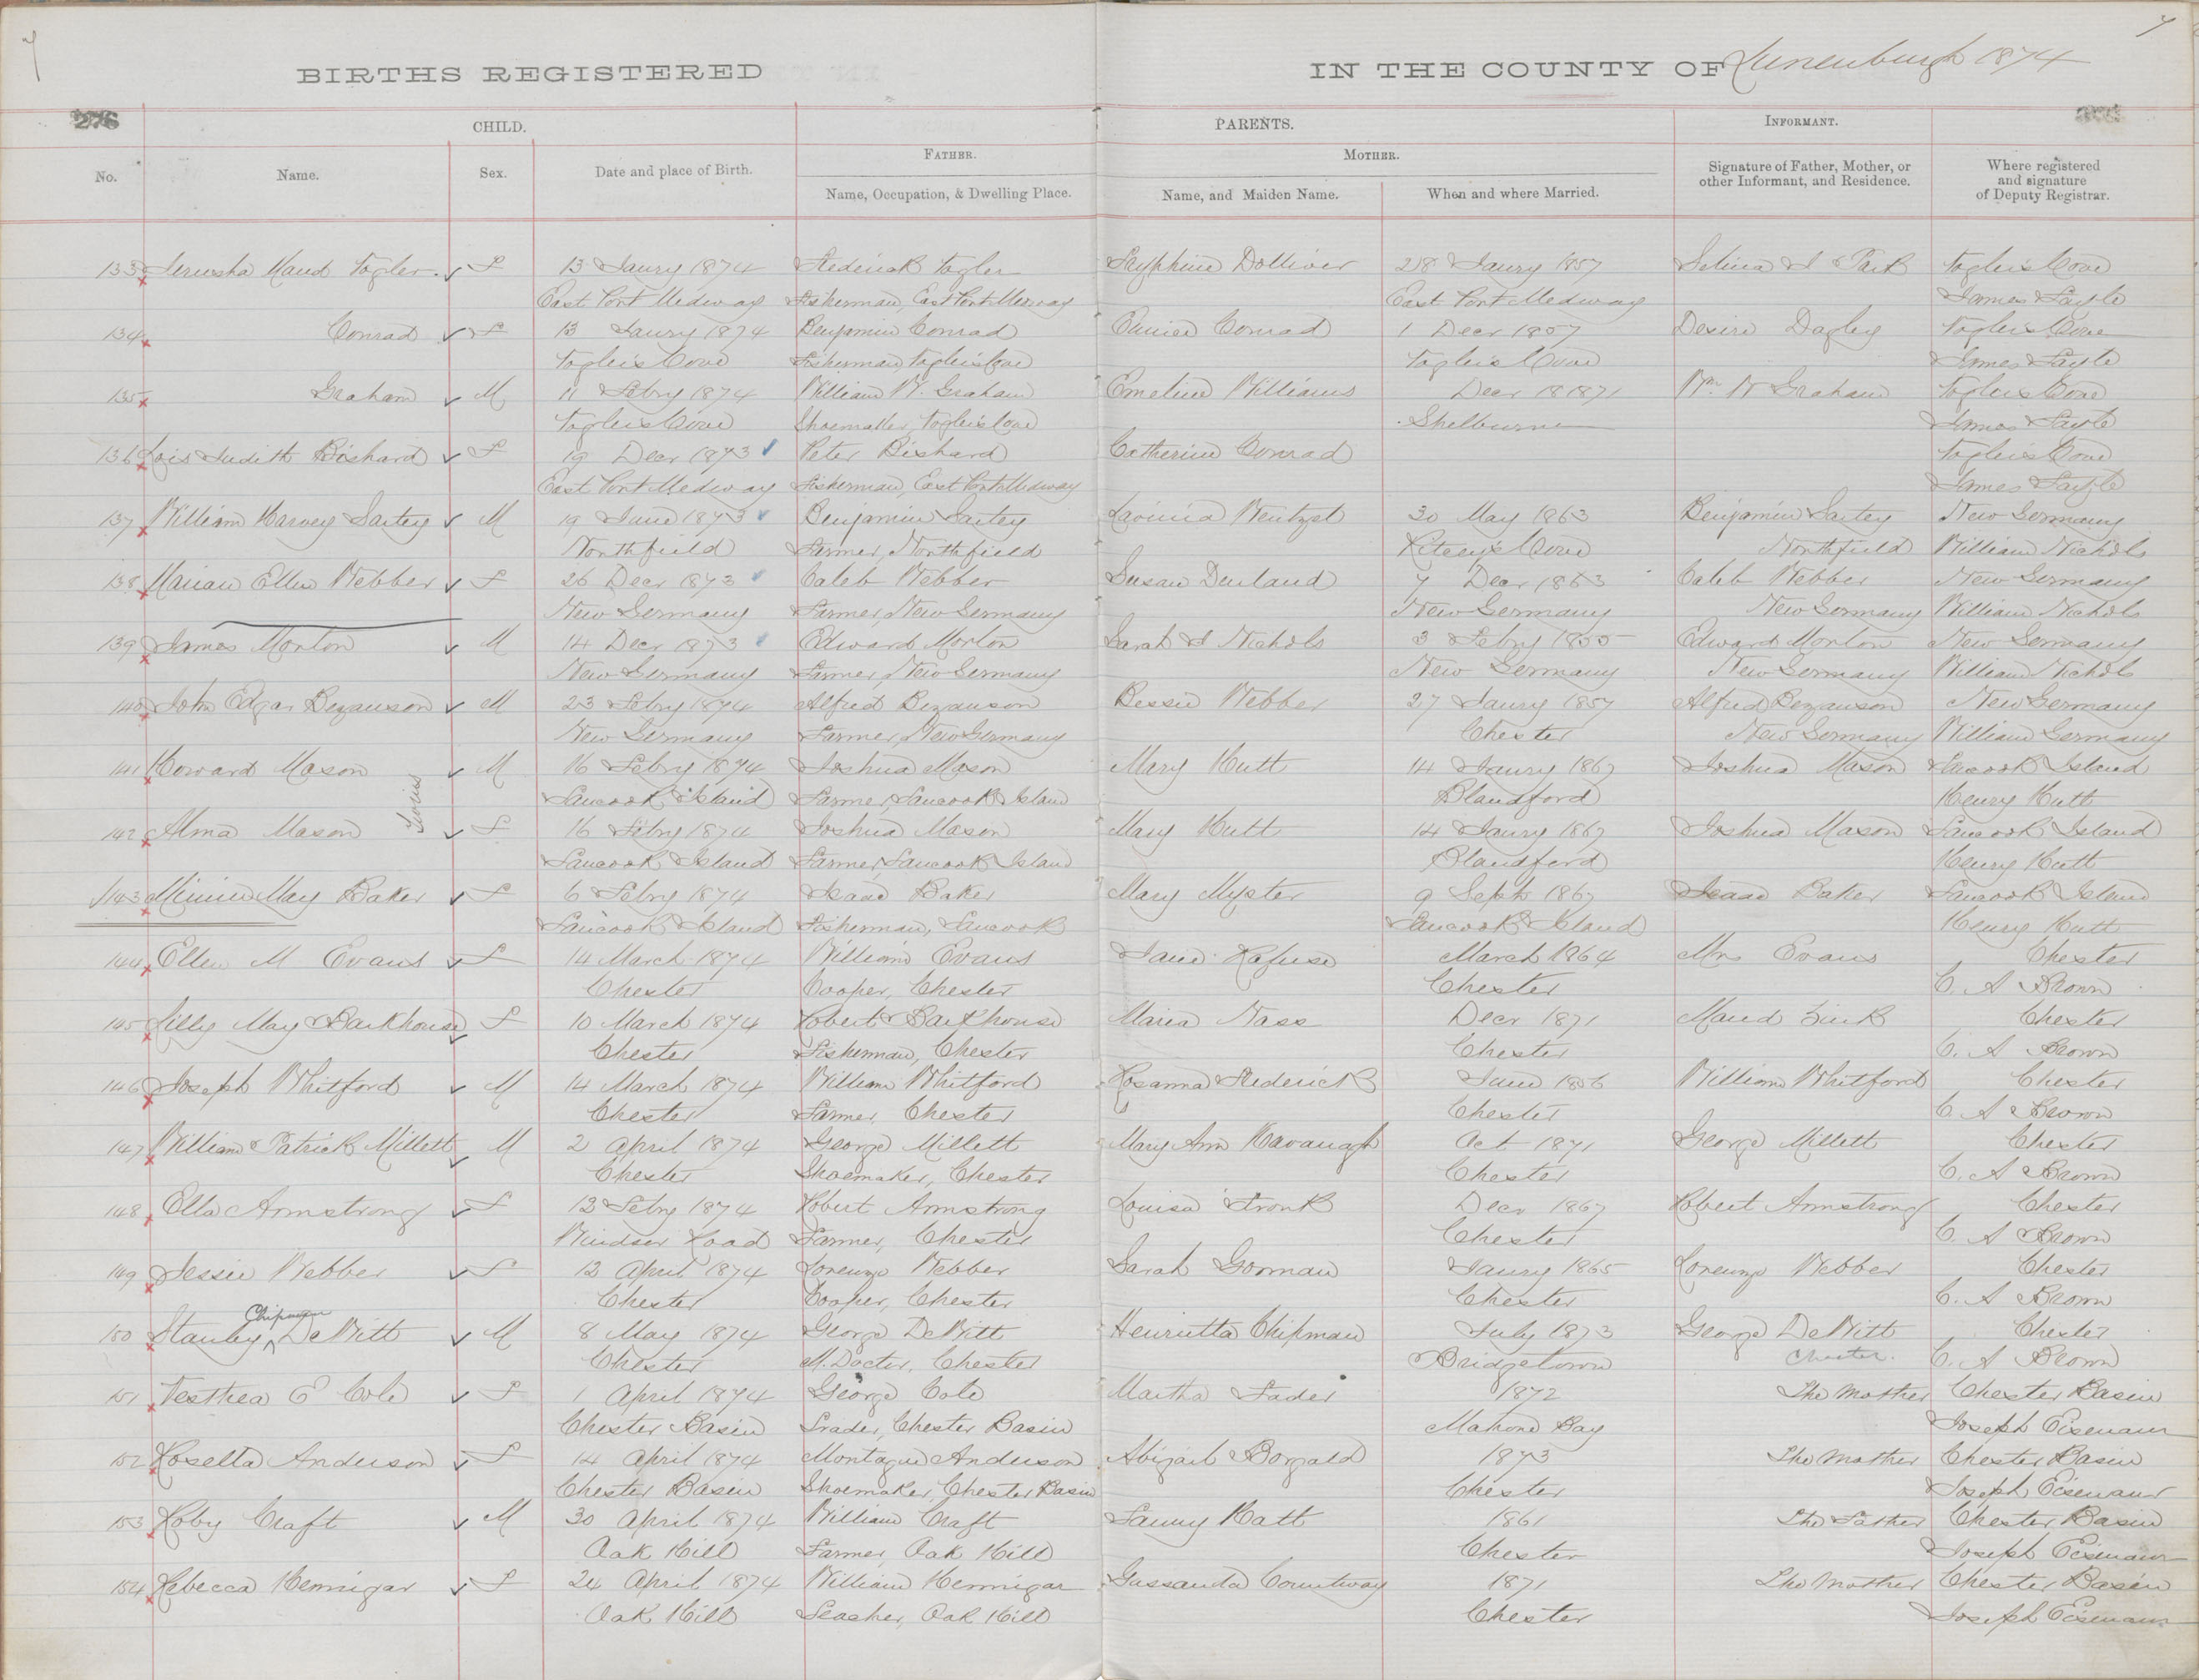 7 7
BIRTHS REGISTERED IN THE COUNTY OF Lunenburgh 1874
276
CHILD. PARENTS. INFORMANT.
FATHER. MOTHER.
No. Name. Sex. Date and place of Birth. Name, Occupation, & Dwelling Place. Name, and Maiden Name. When and where Married. Signature of Father, Mother, or other Informant, and Residence. Where registered and signature of Deputy Registrar.
133 Jerusha Maud Vogler F 13 Jaury 1874 Frederick Vogler Dolliver 28 Jaury 1857 Selina Vogler's Cove
East Port Medway Fisherman, East Port Medway East Port Medway James
134 Conrad F 13 Jaury 1874 Benjamin Conrad Eunice Conrad 1 Decr 1857 Desire Dagley Vogler's Cove
Vogler's Cove Fisherman Vogler's Cove Vogler's Cove James
135 Graham M 11 Febry 1874 William W. Graham Emeline Williams Decr 18 1871 Wm. W Graham Vogler's Cove
Vogler's Cove Shoemaker, Vogler's Cove Shelburne James
136 Lois Judith F 19 Decr 1873 Peter Catherine Conrad Vogler's Cove
East Port Medway Fisherman, East Port Medway James
137 William Harvey Sarty M 19 June 1873 Benjamin Sarty Lavinia Wentzel 30 May 1863 Benjamin Sarty New Germany
Northfield Farmer, Northfield Ritcey's Cove Northfield William Nichols
138 Marian Ellen Webber F 26 Decr 1873 Caleb Webber Susan Durland 7 Decr 1863 Caleb Webber New Germany
New Germany Farmer, New Germany New Germany New Germany William Nichols
139 James Morton M 14 Decr 1873 Edward Morton Sarah J Nichols 3 Febry 1855 Edward Morton New Germany
New Germany Farmer, New Germany New Germany New Germany William Nichols
140 John Edgar Bezanson M 23 Febry 1874 Alfred Bezanson Bessie Webber 27 Jaury 1857 Alfred Bezanson New Germany
New Germany Farmer, New Germany Chester New Germany William Germany
141 Howard Mason M 16 Febry 1874 Joshua Mason Mary Hutt 14 Jaury 1867 Joshua Mason Tancook Island
Twins
Tancook Island Farmer, Tancook Island Blandford Henry Hutt
142 Alma Mason F 16 Febry 1874 Joshua Mason Mary Hutt 14 Jaury 1867 Joshua Mason Tancook Island
Tancook Island Farmer, Tancook Island Blandford Henry Hutt
143 Minnie May Baker F 6 Febry 1874 Isaac Baker Mary 9 Sept 1867 Isaac Baker Tancook Island
Tancook Island Fisherman, Tancook Tancook Island Henry Hutt
144 Ellen M Evans F 14 March 1874 William Evans Jane Refuse March 1864 Mrs Evans Chester
Chester Cooper, Chester Chester C. A Brown
145 Lilly May Barkhouse F 10 March 1874 Robert Barkhouse Maria Nass Decr 1871 Maud Zink Chester
Chester Fisherman, Chester Chester C. A Brown
146 Joseph Whitford M 14 March 1874 William Whitford Rosanna Frederick June 1856 William Whitford Chester
Chester Farmer, Chester Chester C. A Brown
147 William Patrick Millett M 2 April 1874 George Millett Mary Ann Kavanagh Oct 1871 George Millett Chester
Chester Shoemaker, Chester Chester C. A Brown
148 Ella Armstrong F 12 Febry 1874 Robert Armstrong Louisa Fronk Decr 1867 Robert Armstrong Chester
Windsor Road Farmer, Chester Chester C. A Brown
149 Jessie Webber F 12 April 1874 Lorenzo Webber Sarah Gorman Jaury 1865 Lorenzo Webber Chester
Chester Cooper, Chester Chester C. A Brown
Chipman
150 Stanley DeWitt M 8 May 1874 George DeWitt Henrietta Chipman July 1873 George DeWitt Chester
Chester M. Doctor, Chester Bridgetown Chester. C. A Brown
151 Testhea E Cole F 1 April 1874 George Cole Martha Fader 1872 The Mother Chester Basin
Chester Basin Trader, Chester Basin Mahone Bay Joseph Eisenaur
152 Rosella Anderson F 14 April 1874 Montague Anderson Abigail Borgald 1873 The Mother Chester Basin
Chester Basin Shoemaker, Chester Basin Chester Joseph Eisenaur
153 Roby Craft M 30 April 1874 William Craft Fanny Hatt 1861 The Father Chester Basin
Oak Hill Farmer, Oak Hill Chester Joseph Eisenaur
154 Rebecca Hennigar F 24 April 1874 William Hennigar Gassanda Countway 1871 The Mother Chester Basin
Oak Hill Oak Hill Chester Joseph Eisenaur